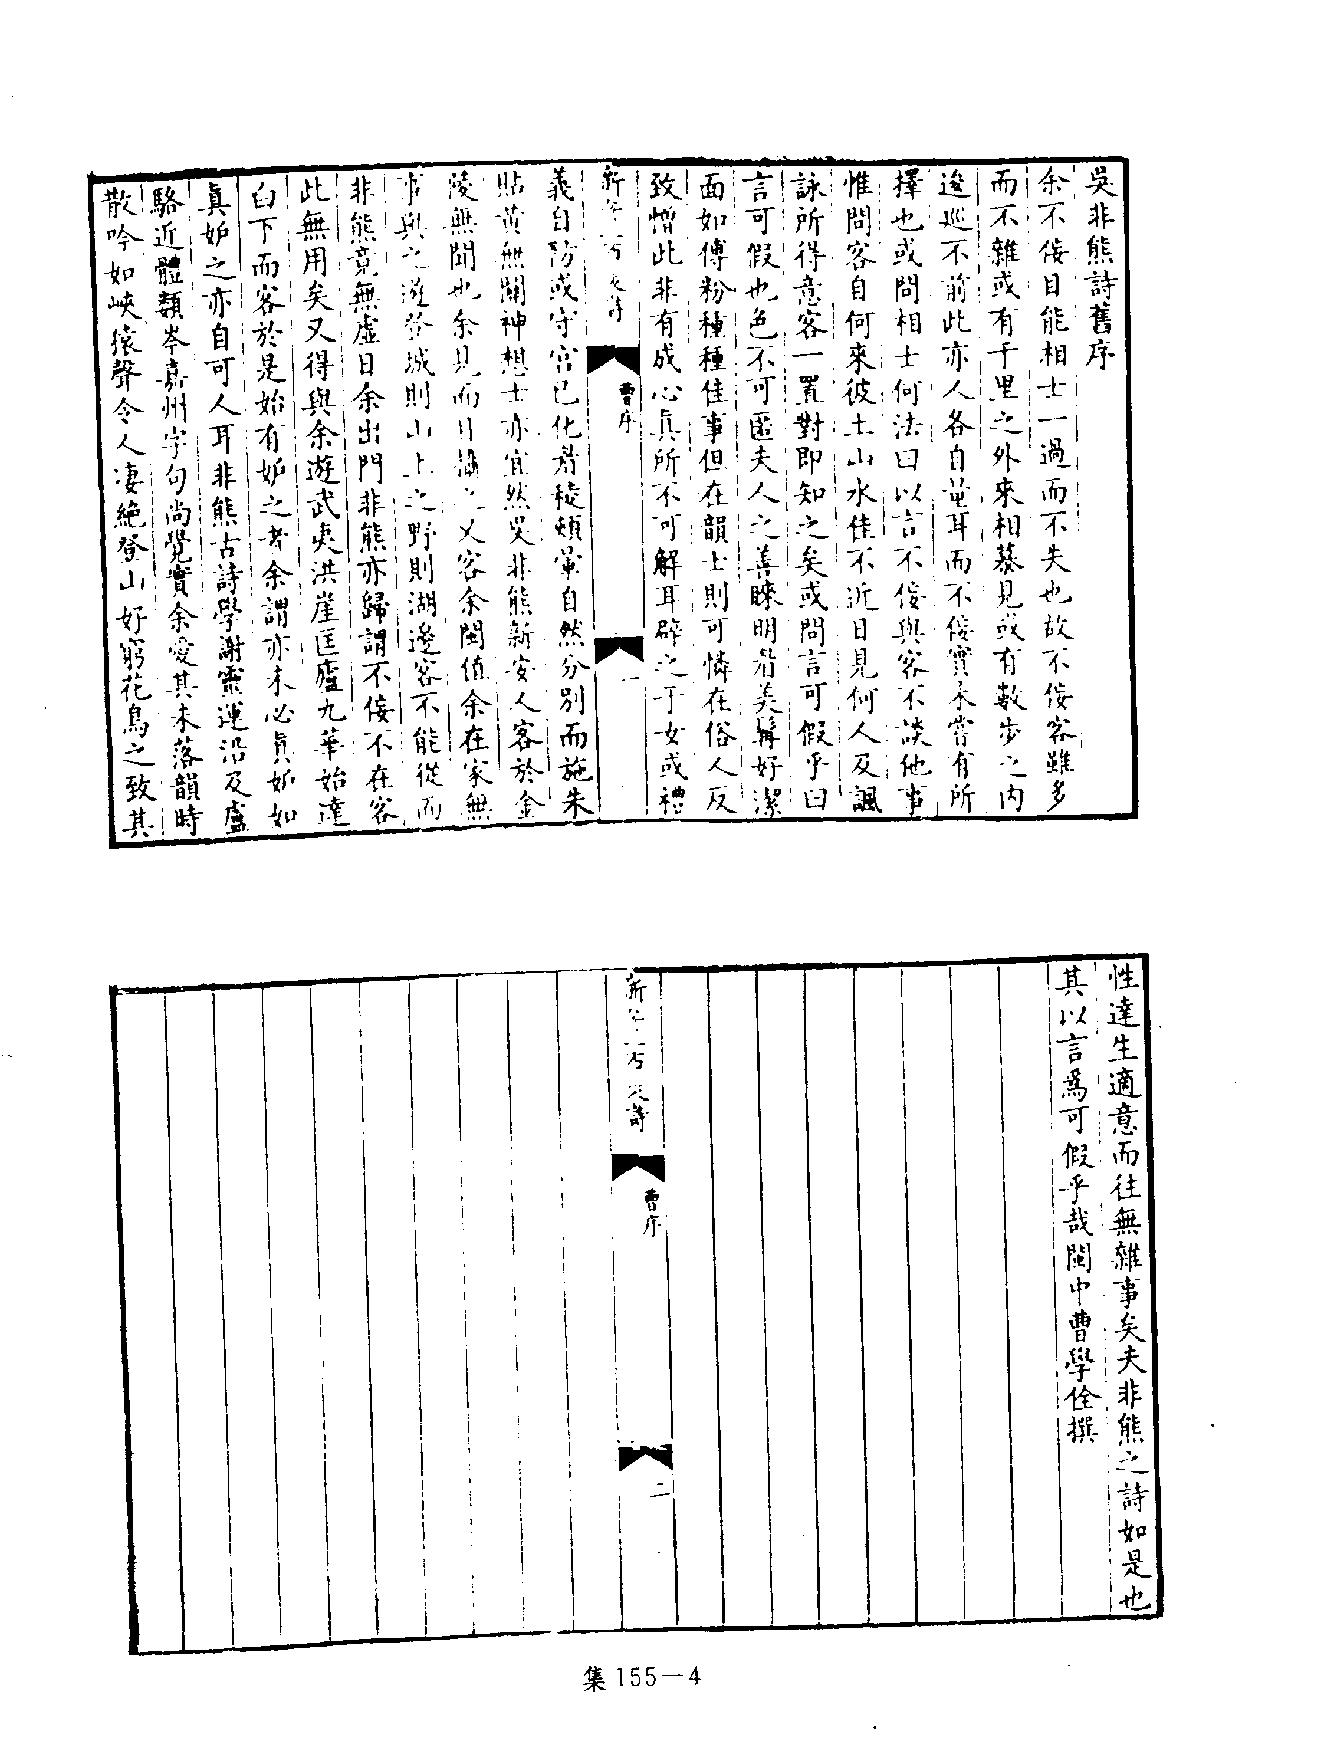 吳非熊詩舊序
余不佞目能相士一過而不失也故不佞客雖多
而不雜或有千里之外來相慕見或有數步之內
逡巡不前此亦人各自量耳而不佞實未嘗有所
擇也或問相士何法曰以言不佞與客不談他事
惟問客自何來彼土山水佳不近日見何人及諷
詠所得意客一置對即知之矣或問言可假乎曰
言可假也色不可匿夫人之善睞明眉美髯好潔
面如傅粉種種佳事但在韻士則可憐在俗人反
致憎此非有成心真所不可解耳辟之于女或禮
義自防或守宮已化眉稜頰暈自然分別而施朱
貼黃無關神想士亦宜然吳非熊新安人客於金
陵無聞也余見而目攝之又客余閩值余在家無
事與之遊登城則山上之野則湖邊客不能從而
非熊竟無虛日余出門非熊亦歸謂不佞不在客
此無用矣又得與余遊武夷洪崖匡廬九華始達
白下而客於是始有妒之者余謂亦未必真妒如
真妒之亦自可人耳非熊古詩學謝靈運沿及盧
駱近體類岑嘉州字句尚覺實余愛其未落韻時
散吟如峽猿聲令人凄絶登山好窮花鳥之致其
曹序
一
性達生適意而往無雜事矣夫非熊之詩如是也
其以言爲可假乎哉閩中曹學佺撰
曹序
二
集155—4